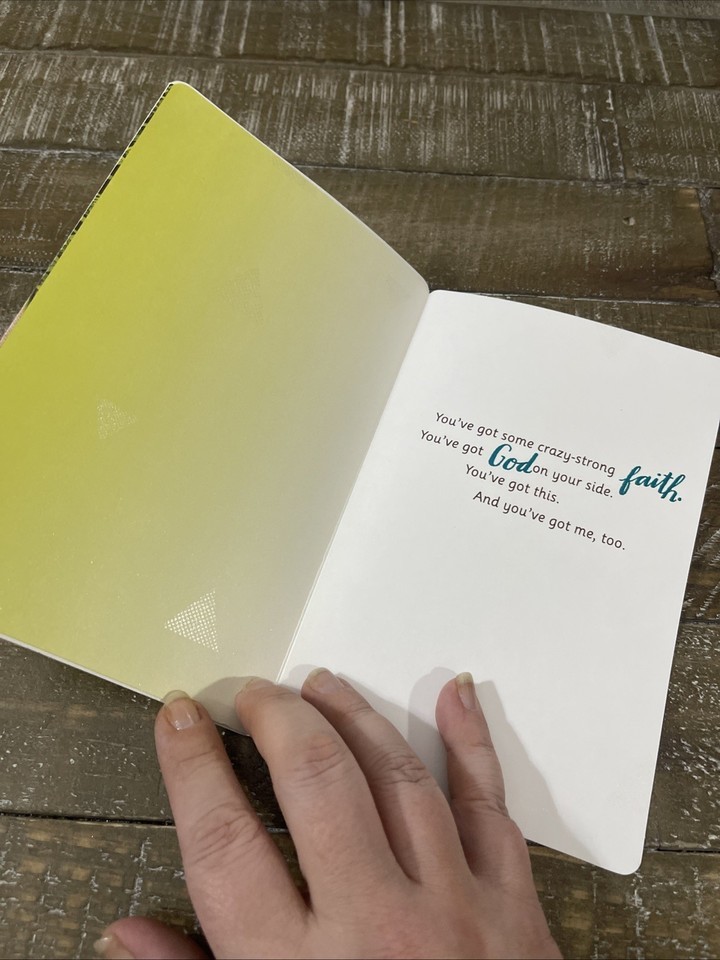 You've got some crazy-strong faith.
You've got God on your side.
You've got this.
And you've got me, too.